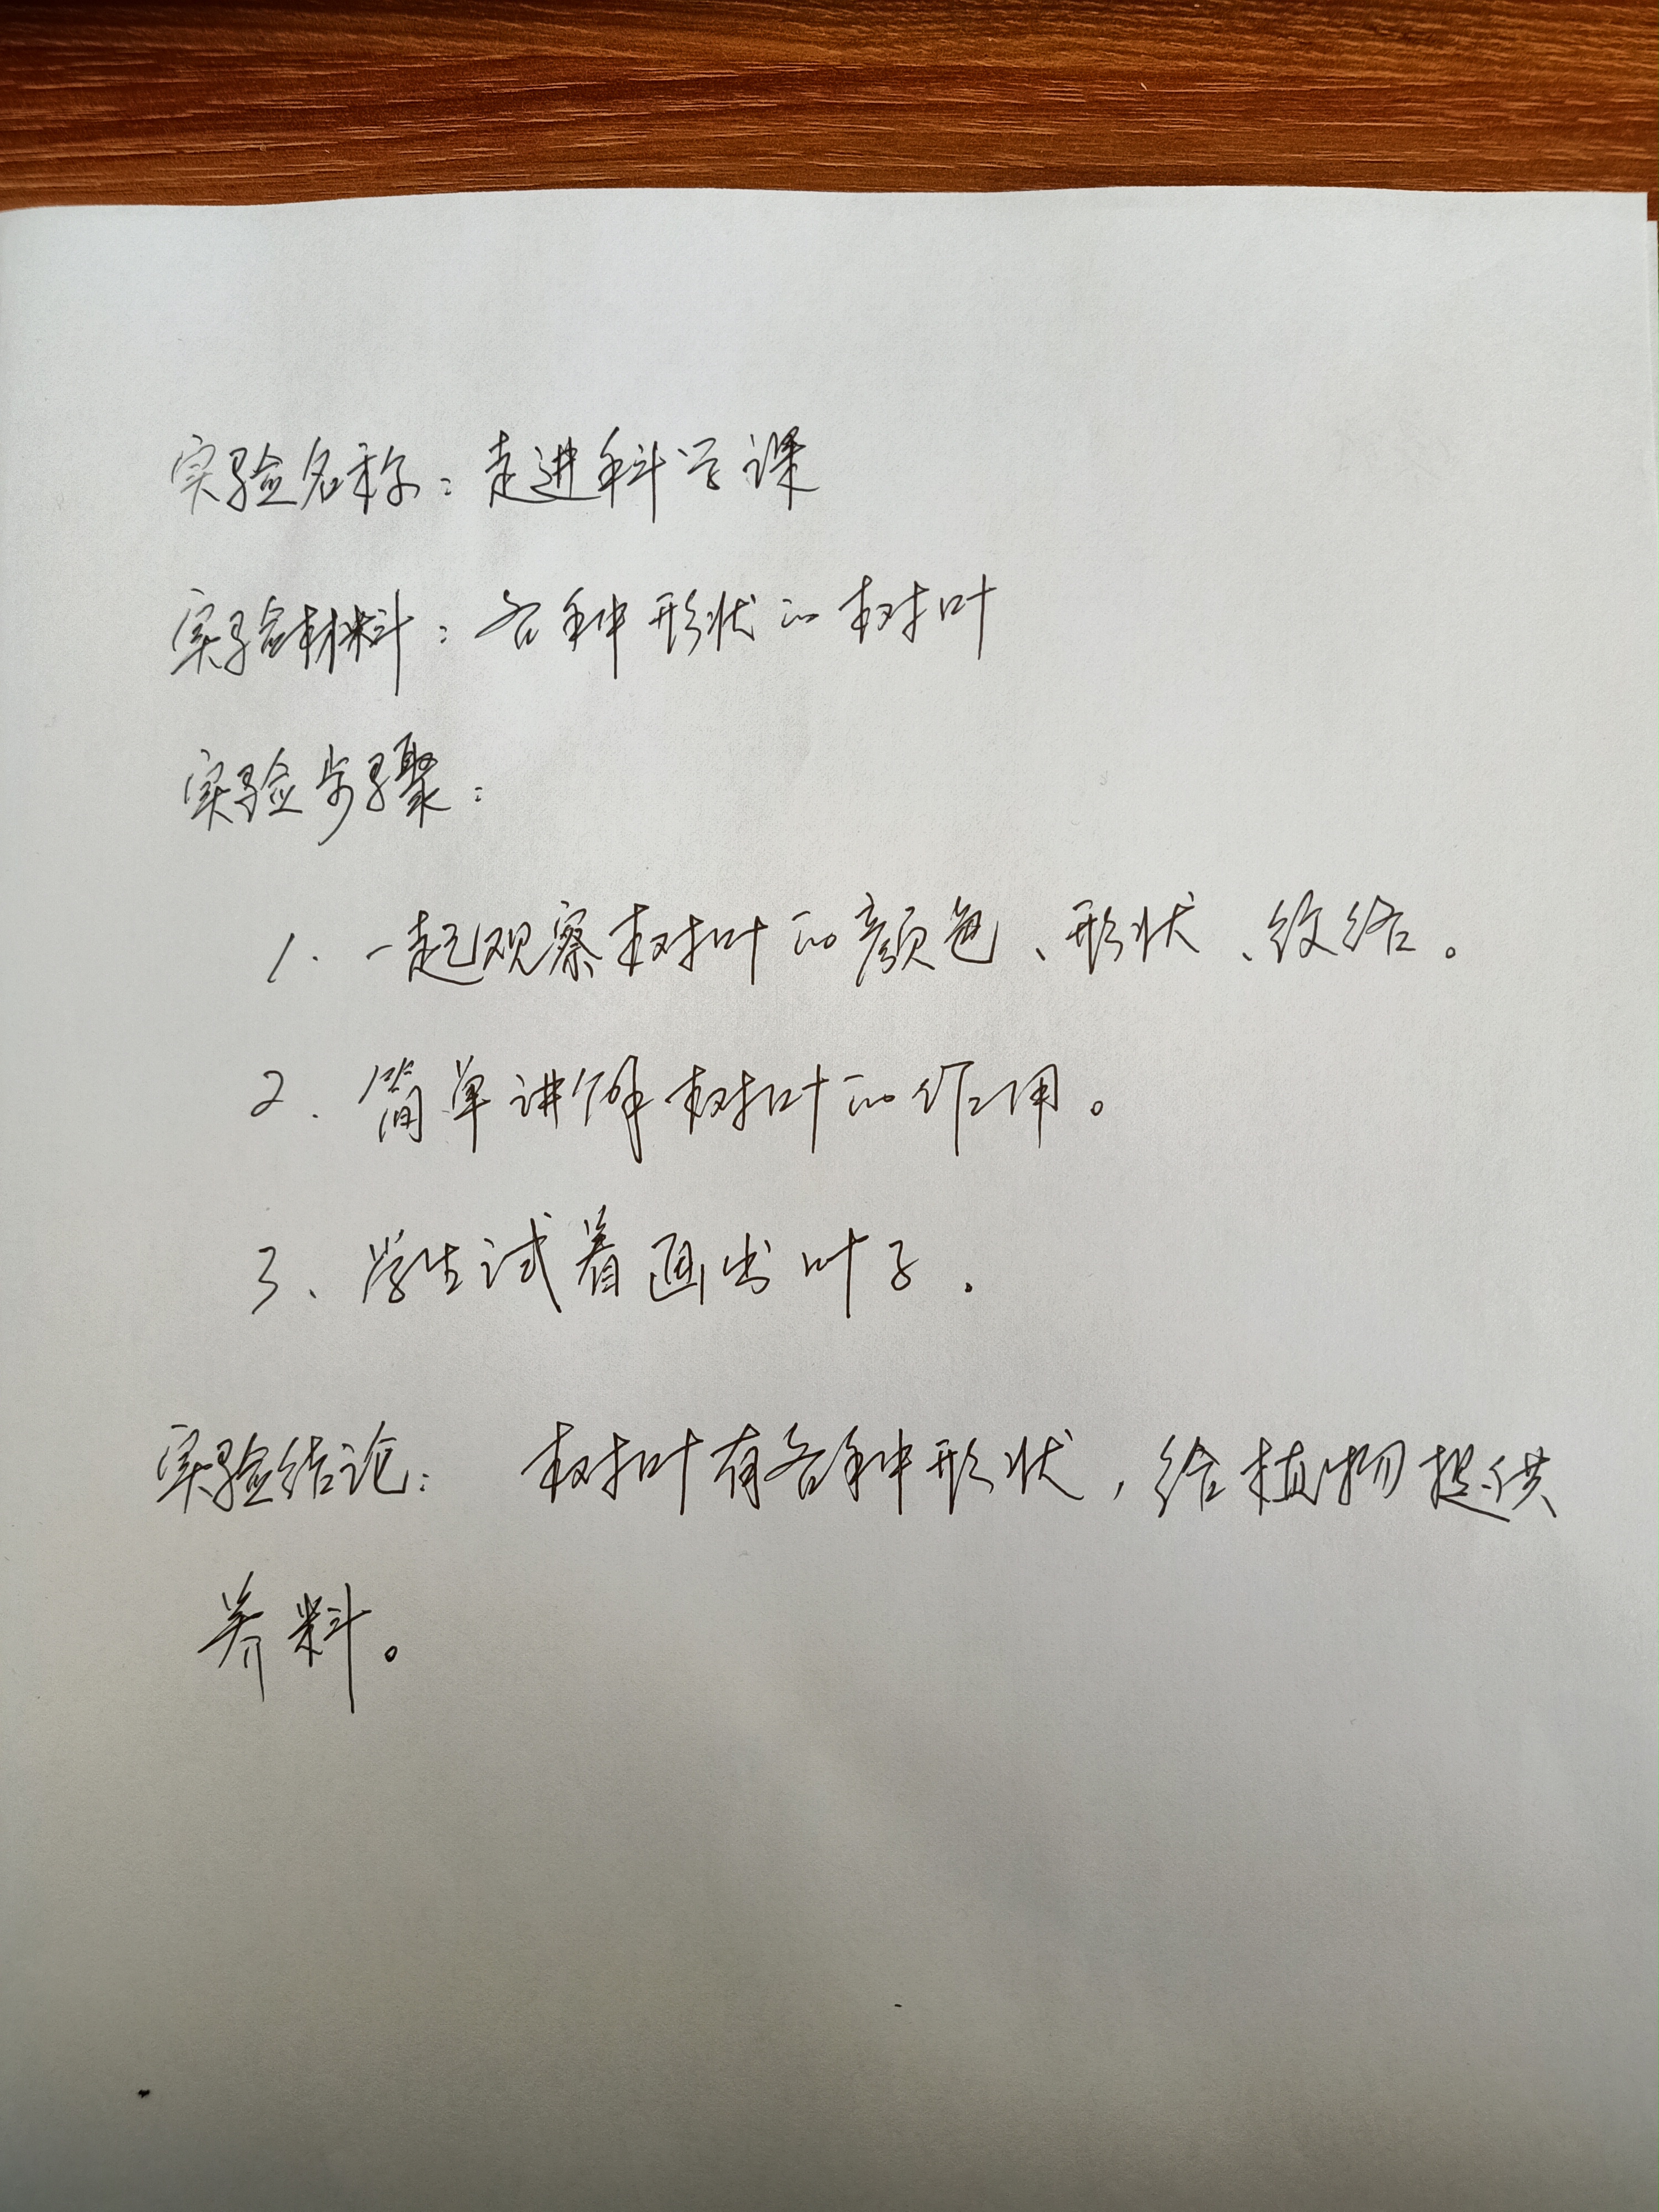 实验名称：走进科学课
实验材料：各种形状的树叶
实验步骤：
1. 一起观察树叶的颜色、形状、纹络。
2. 简单讲解树叶的作用。
3、学生试着画出叶子.
实验结论： 树叶有各种形状，给植物提供
养料。